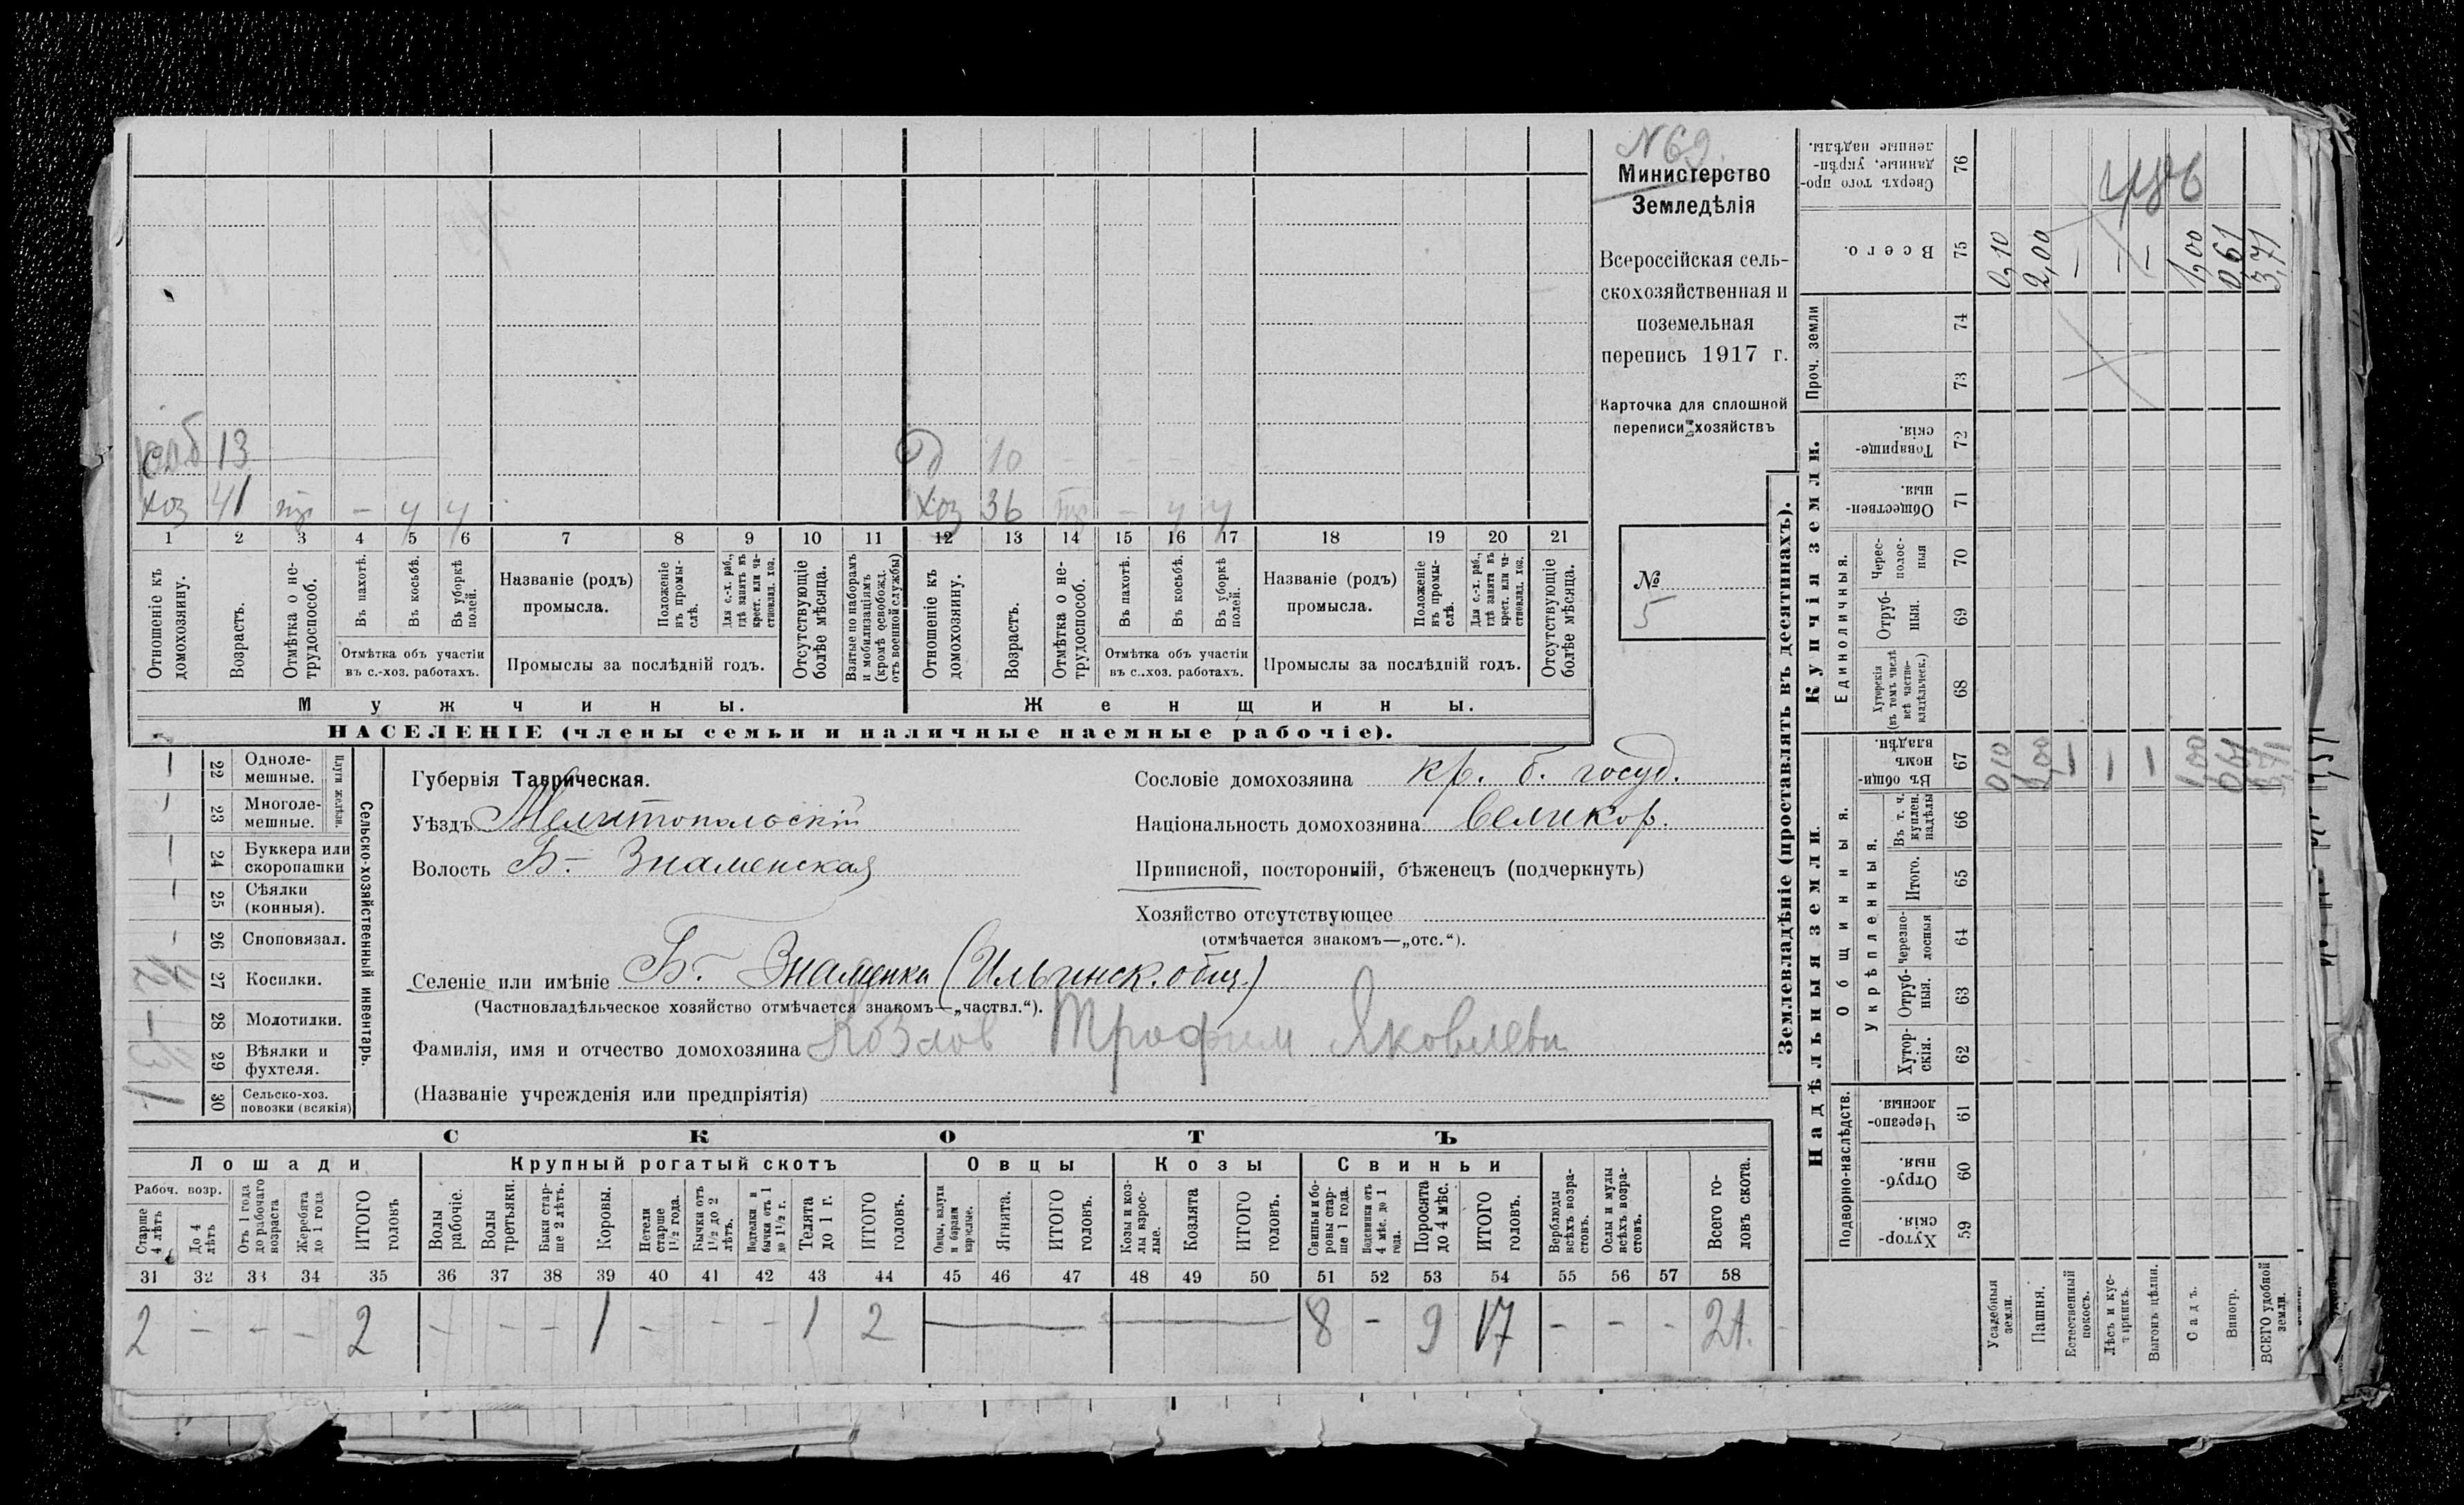 № 69.
Министерство
Земледѣлія
Всероссійская сель-
скохозяйственная и
поземельная
перепись 1917 г.
Карточка для сплошной
переписи хозяйствъ
№
5
13
10
хоз 41 тр — ч ч
хоз 36 тр — ч ч
1 2 3 4 5 6 7 8 9 10 11 12 13 14 15 16 17 18 19 20 21
Отношеніе къ домохозяину.
Возрастъ.
Отмѣтка о не-трудоспособ.
Въ пахотѣ.
Въ косьбѣ.
Въ уборкѣ полей.
Отмѣтка объ участіи
въ с.-хоз. работахъ.
Названіе (родъ)
промысла.
Положеніе въ промы-слѣ.
Для с.-х. раб., гдѣ занятъ въ крест. или ча-стновлад. хоз.
Промыслы за послѣдній годъ.
Отсутствующіе болѣе мѣсяца.
Взятые по наборамъ и мобилизаціямъ (кромѣ освобожд. отъ военной службы)
Отношеніе къ домохозяину.
Возрастъ.
Отмѣтка о не-трудоспособ.
Въ пахотѣ.
Въ косьбѣ.
Въ уборкѣ полей.
Отмѣтка объ участіи
въ с..хоз. работахъ.
Названіе (родъ)
промысла.
Положеніе въ промы-слѣ.
Для с.-х. раб., гдѣ занята въ крест. или ча-стновлад. хоз.
Промыслы за послѣдній годъ.
Отсутствующіе болѣе мѣсяца.
Мужчины.
Женщины.
НАСЕЛЕНІЕ (члены семьи и наличные наемные рабочіе).
Сельско-хозяйственный инвентарь.
Плуги желѣзн.
22 Одноле-мешные.
23 Многоле-мешные.
24 Буккера или скоропашки
25 Сѣялки (конныя).
26 Сноповязал.
27 Косилки.
28 Молотилки.
29 Вѣялки и фухтеля.
30 Сельско-хоз. повозки (всякія)
Губернія Таврическая.
Уѣздъ Мелитопольскій
Волость Б- Знаменская
Сословіе домохозяина кр. б. госуд.
Національность домохозяина великор.
Приписной, посторонній, бѣженецъ (подчеркнуть)
Хозяйство отсутствующее
(отмѣчается знакомъ—„отс.“).
Селеніе или имѣніе Б- Знаменка (Ильинск. общ.)
(Частновладѣльческое хозяйство отмѣчается знакомъ—„частвл.“).
Фамилія, имя и отчество домохозяина Козлов Трофим Яковлевич
(Названіе учрежденія или предпріятія)
СКОТЪ
Лошади
Крупный рогатый скотъ
Овцы
Козы
Свиньи
Рабоч. возр.
Старше 4 лѣтъ
До 4 лѣтъ
Отъ 1 года до рабочаго возраста
Жеребята до 1 года
ИТОГО головъ
Волы рабочіе.
Волы третьяки.
Быки стар-ше 2 лѣтъ.
Коровы.
Нетели старше 1½ года.
Бычки отъ 1½ до 2 лѣтъ.
Подтелки и бычки отъ 1 до 1½ г.
Телята до 1 г.
ИТОГО головъ.
Овцы, валухи и бараны взрослые.
Ягнята.
ИТОГО головъ.
Козы и коз-лы взрос-лые.
Козлята
ИТОГО головъ.
Свиньи и бо-ровы стар-ше 1 года.
Подсвинки отъ 4 мѣс. до 1 года.
Поросята до 4 мѣс.
ИТОГО головъ.
Верблюды всѣхъ возра-стовъ.
Ослы и мулы всѣхъ возра-стовъ.
Всего го-ловъ скота.
31 32 33 34 35 36 37 38 39 40 41 42 43 44 45 46 47 48 49 50 51 52 53 54 55 56 57 58
2 — — — 2 — — — 1 — — — 1 2 — — 8 — 9 17 — — — 21.
Землевладѣніе (проставлять въ десятинахъ).
Надѣльныя земли.
Купчія земли.
Проч. земли
Подворно-наслѣдств.
Общинныя.
Укрѣпленныя.
Единоличныя.
Хутор-скія. 59
Отруб-ныя. 60
Черезпо-лосныя. 61
Хутор-скія. 62
Отруб-ныя. 63
Черезпо-лосныя 64
Итого. 65
Въ т. ч. куплен. надѣлы 66
Въ общи-номъ владѣн. 67
Хуторскія (въ томъ числѣ всѣ частно-владѣльческ.) 68
Отруб-ныя. 69
Черес-полос-ныя 70
Обществен-ныя. 71
Товарище-скія. 72
73
74
Всего. 75
Сверхъ того про-данные, укрѣп-ленные надѣлы. 76
Усадебныя земли. 0,10 0,10
Пашня. 2,00 2,00
Естественный покосъ. — —
Лѣсъ и кус-тарникъ. — —
Выгонъ цѣлин. — —
Садъ. 1,00 1,00
Виногр. 0,61 0,61
ВСЕГО удобной земли. 3,71 3,71